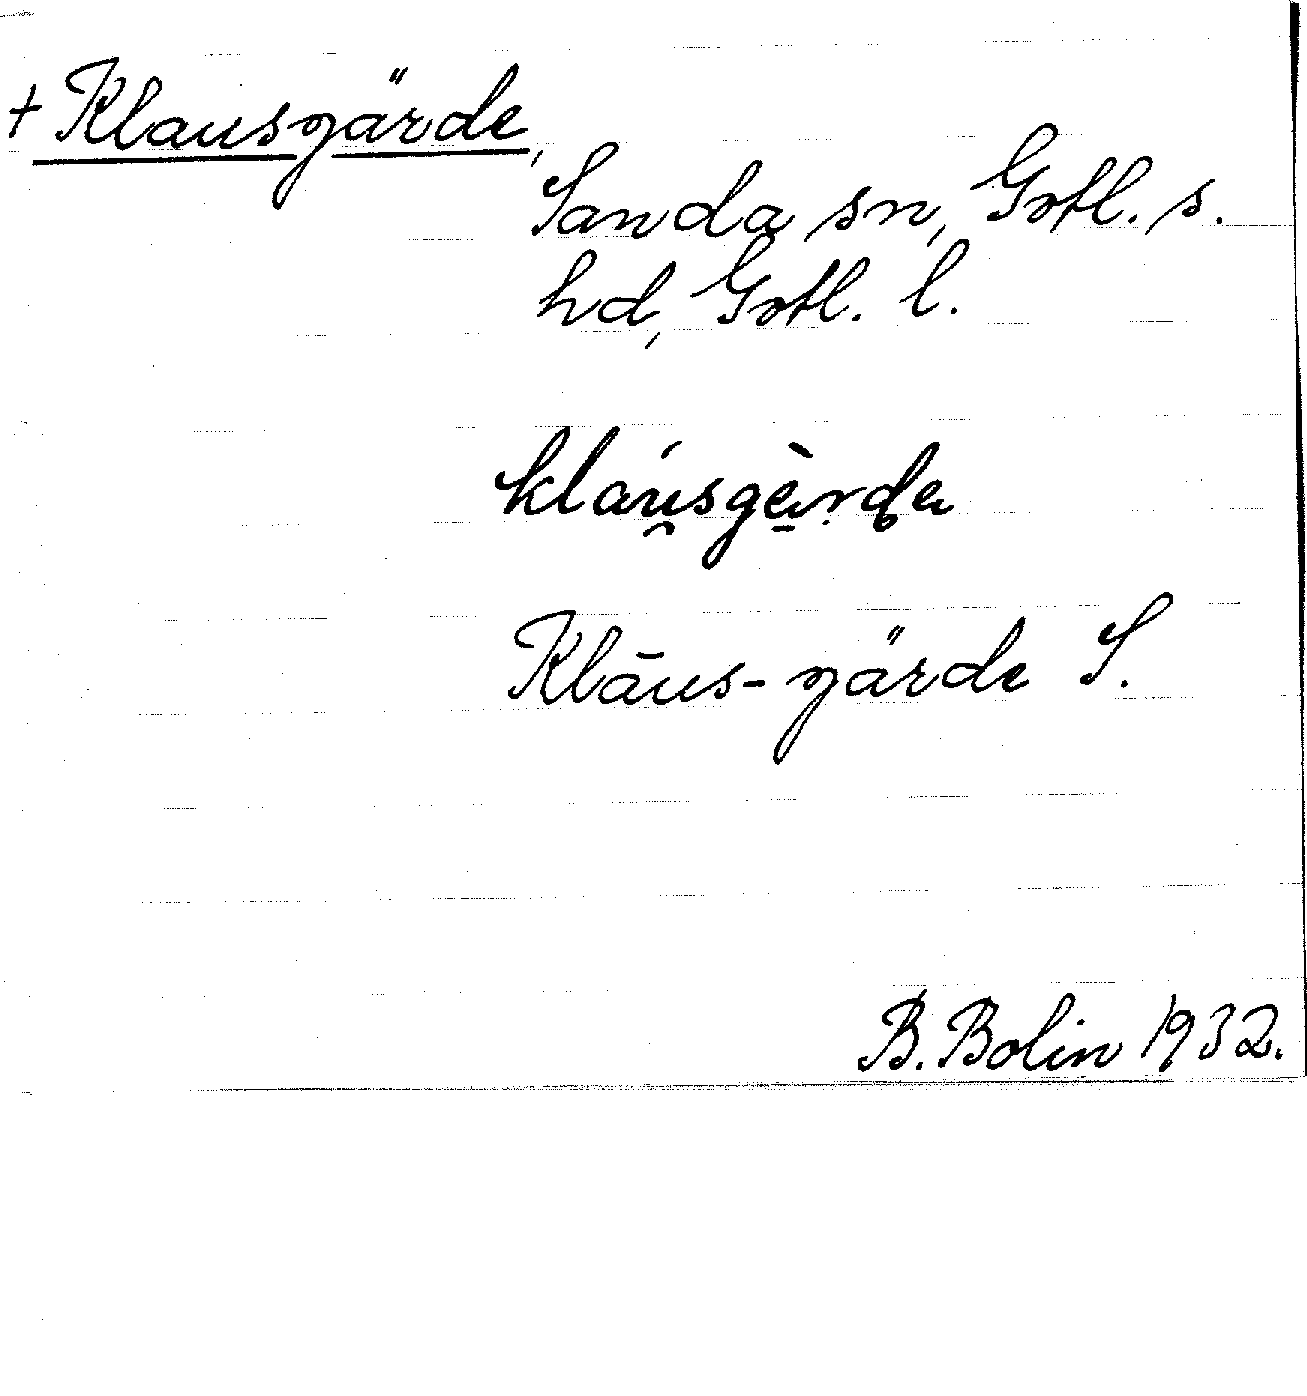 + Klausgärde,
Sanda sn, Gotl. s.
hd, Gotl. l.
kláu̯sgæ̀rda
Klāus-gärde S.
B. Bolin 1932.